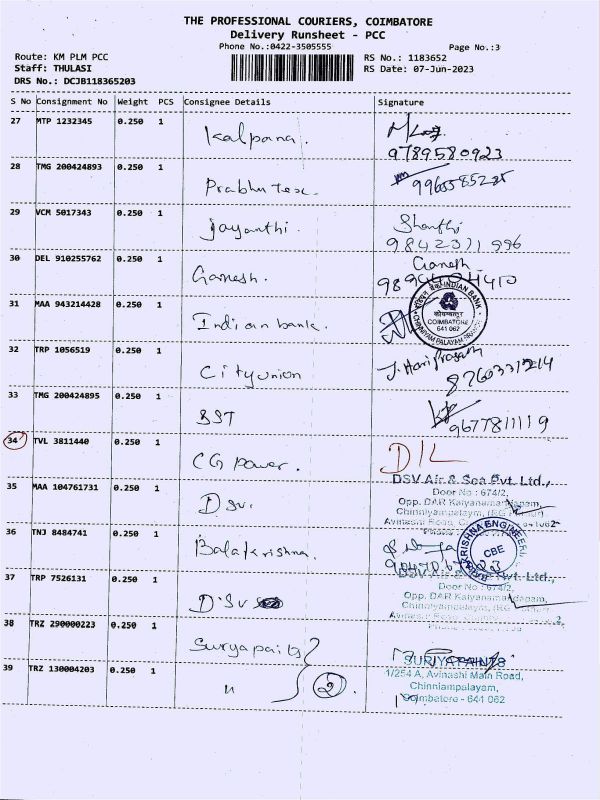 THE PROFESSIONAL COURIERS, COIMBATORE
Delivery Runsheet - PCC
Phone No.:0422-3505555 Page No.:3
Route: KM PLM PCC RS No.: 1183652
Staff: THULASI RS Date: 07-Jun-2023
DRS No.: DCJB118365203
S No Consignment No Weight PCS Consignee Details Signature
27 MTP 1232345 0.250 1 Kalpana.
9789580923
28 TMG 200424893 0.250 1 Prabhu tex.
29 VCM 5017343 0.250 1 Jayanthi. Shanthi
9842371996
30 DEL 910255762 0.250 1 Ganesh. Ganesh
31 MAA 943214428 0.250 1 Indian bank.
INDIAN BANK
COIMBATORE
641 062
CHINNIYAM PALAYAM BRANCH
32 TRP 1056519 0.250 1 City union J. Hari Prasath
33 TMG 200424895 0.250 1 SST
9677811119
34 TVL 3811440 0.250 1 CG power. D/L
35 MAA 104761731 0.250 1 Dsv. DSV Air & Sea Pvt. Ltd.,
Door No : 674/2,
Opp. DAR Kalyanamandapam,
36 TNJ 8484741 0.250 1 Balakrishna.
CBE
37 TRP 7526131 0.250 1 D.Sv DSV Air & Sea Pvt. Ltd.,
Door No : 674/2,
Opp. DAR Kalyanamandapam,
38 TRZ 290000223 0.250 1 Surya paints
39 TRZ 130004203 0.250 1 " 2
SURIYA PAINTS
1/254 A, Avinashi Main Road,
Chinniampalayam,
Coimbatore - 641 062